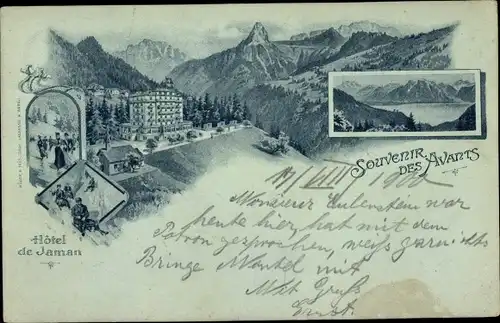 SOUVENIR
DES AVANTS
Hôtel
de Jaman
1900
Monsieur Eulenstein war
heute hier, hat mit dem
Patron gesprochen, weiß gar nichts
Bringe Mantel mit
Mit Gruß
Ernst.